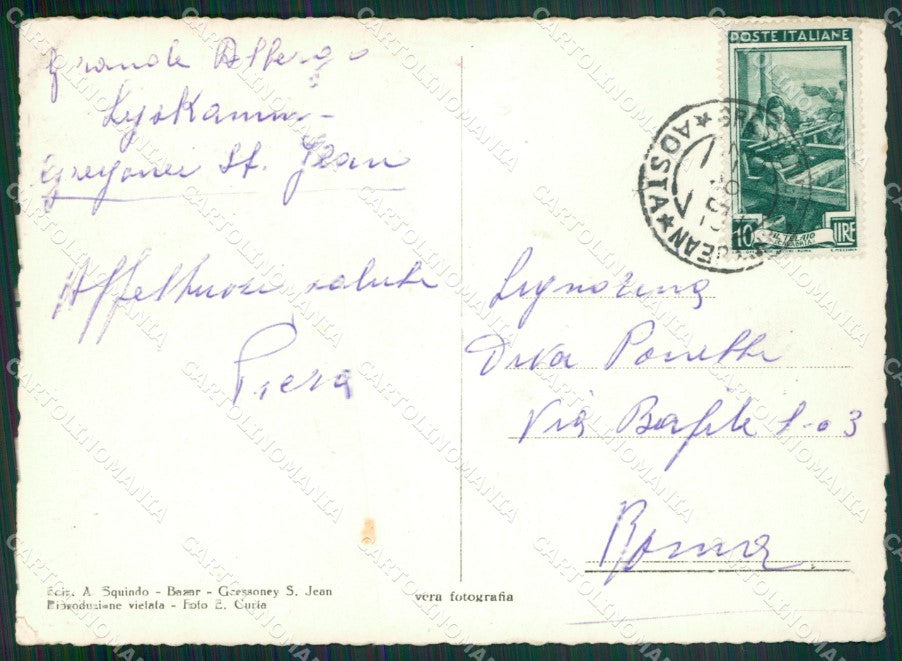 Grande Albergo
Lyskamm -
Gressoney St. Jean
Affettuosi saluti
Piera
POSTE ITALIANE
10 LIRE
AOSTA
JEAN
Signorina
Diva Ponetti
Via
3
Roma
Ediz. A. Squindo - Bazar - Gressoney S. Jean
Riproduzione vietata - Foto E. Curta
vera fotografia
CARTOLINOMANIA